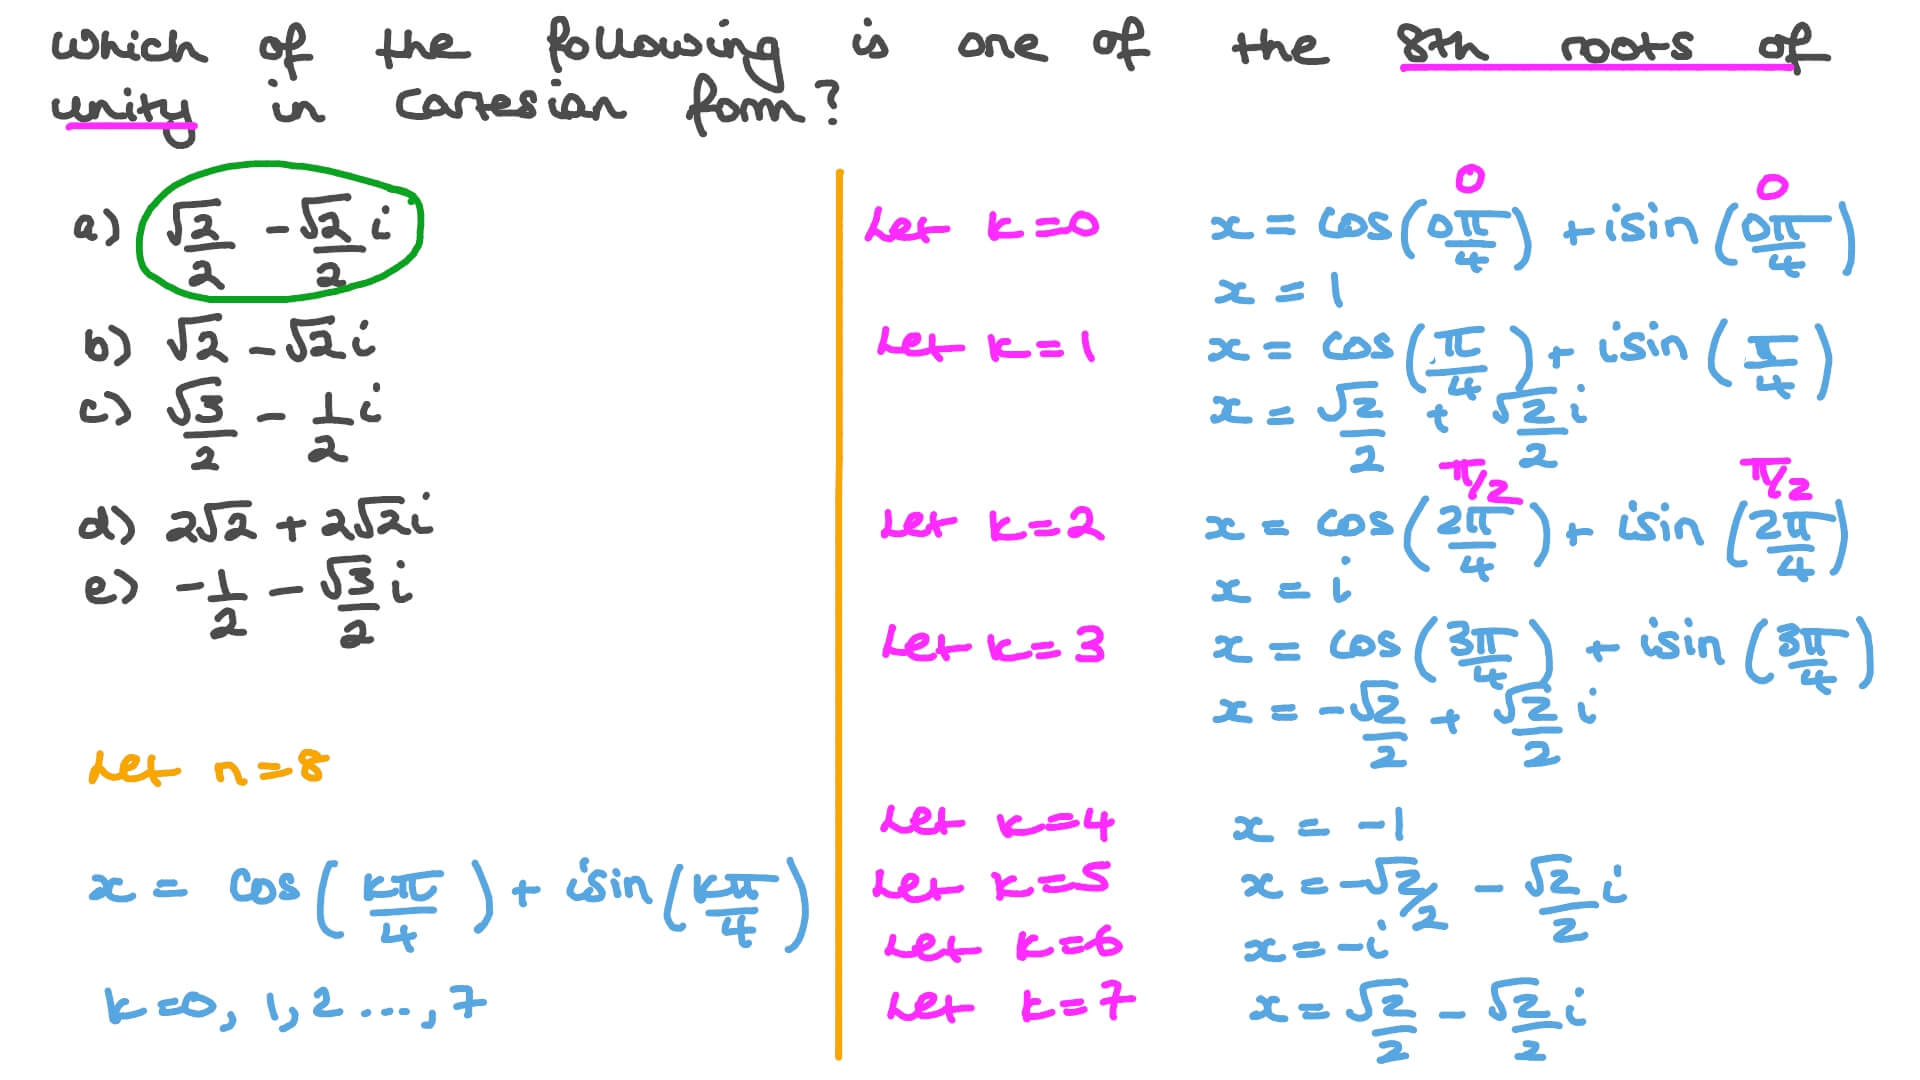 Which of the following is one of the 8th roots of
unity in Cartesian form?
a) √2/2 - √2/2 i
b) √2 - √2 i
c) √3/2 - 1/2 i
d) 2√2 + 2√2 i
e) -1/2 - √3/2 i
Let n=8
x = cos(kπ/4) + isin(kπ/4)
k=0, 1, 2 ..., 7
0 0
Let k=0 x = cos(0π/4) + isin(0π/4)
x = 1
Let k=1 x = cos(π/4) + isin(π/4)
x = √2/2 + √2/2 i
π/2 π/2
Let k=2 x = cos(2π/4) + isin(2π/4)
x = i
Let k=3 x = cos(3π/4) + isin(3π/4)
x = -√2/2 + √2/2 i
Let k=4 x = -1
Let k=5 x = -√2/2 - √2/2 i
Let k=6 x = -i
Let k=7 x = √2/2 - √2/2 i